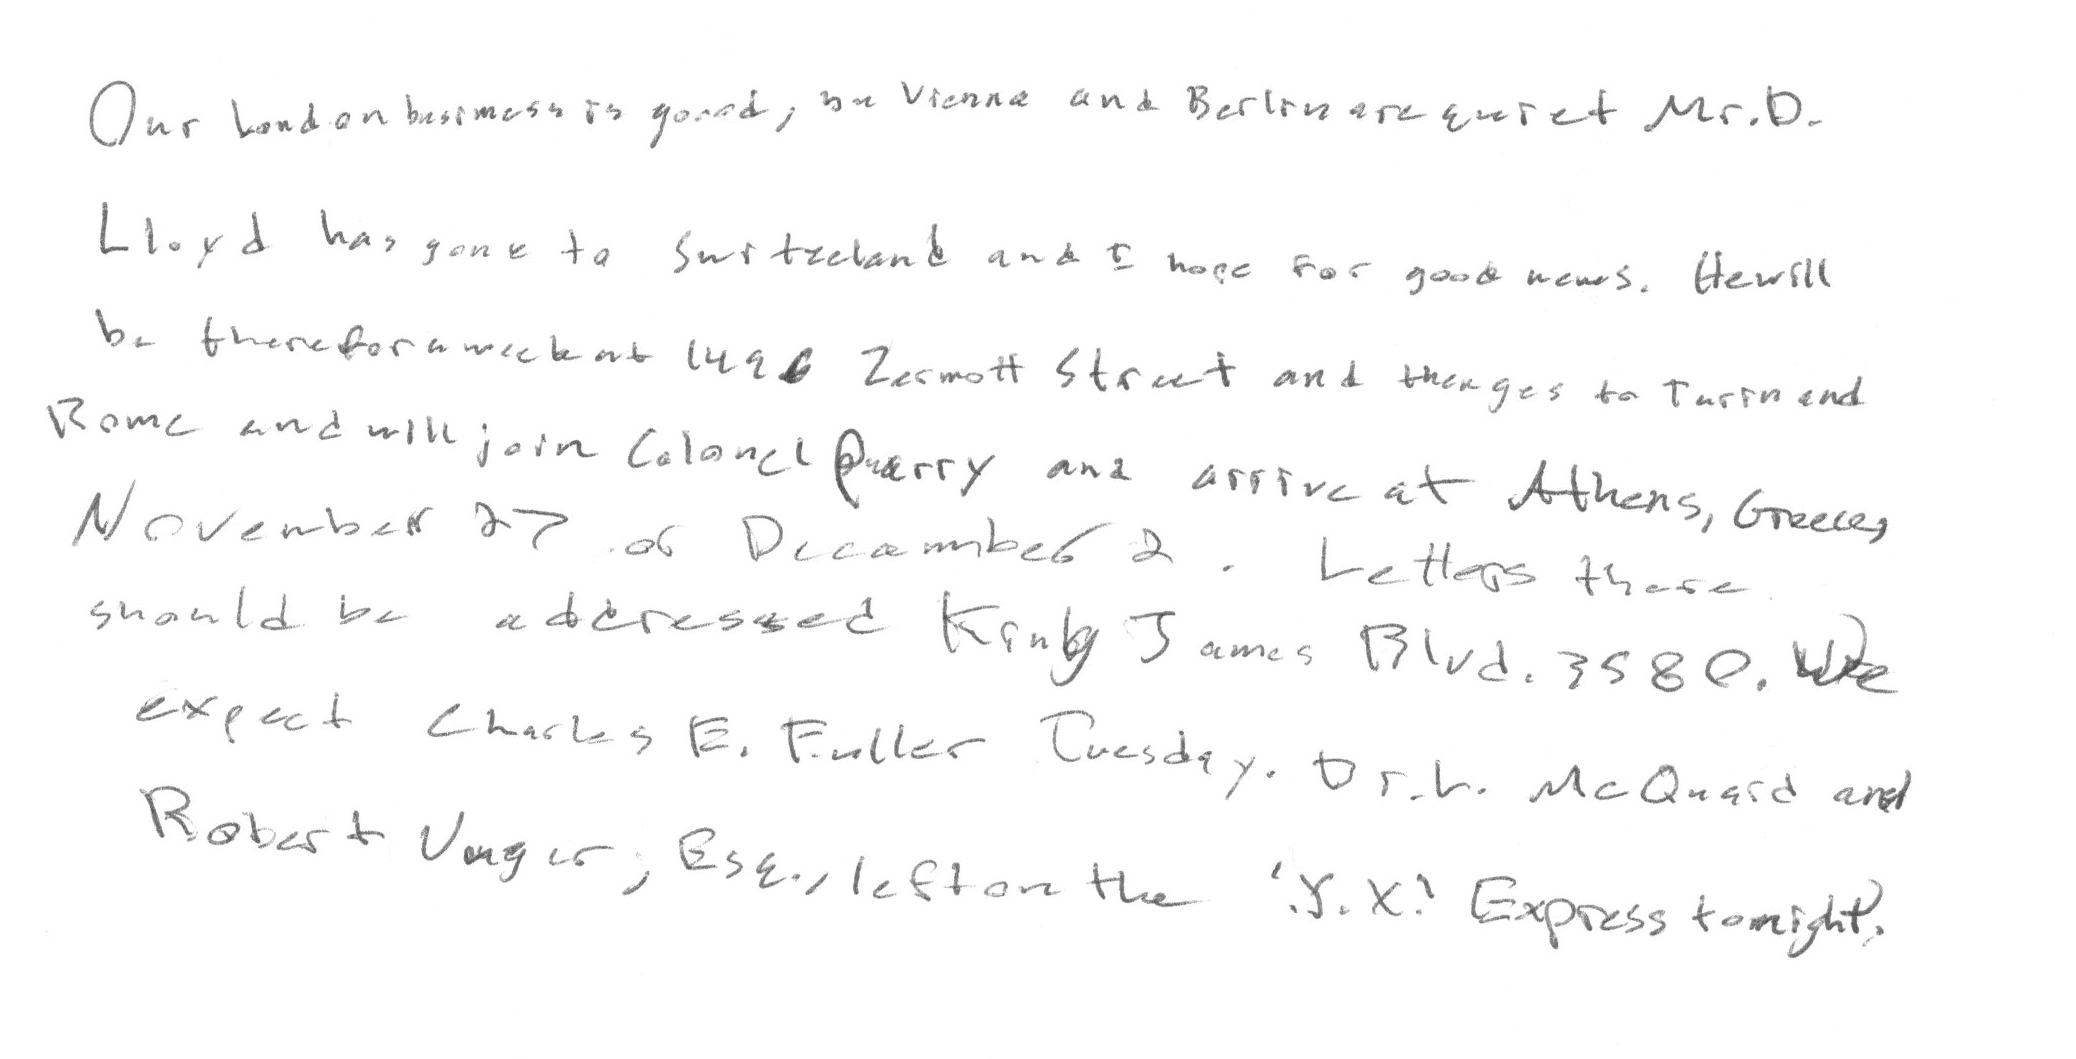 Our London business is good, bu Vienna and Berlin are quiet Mr. D.
Lloyd has gone to Switzeland and I hope for good news. He will
be there for a week at 1496 Zermott Street and then goes to Turin and
Rome and will join Colonel Quarry and arrive at Athens, Greece,
November 27 or December 2. Letters there
should be addressed King James Blvd. 3580. We
expect Charles E. Fuller Tuesday. Dr. L. McQuaid and
Robert Unger, Esq., left on the 'Y.X.' Express tonight.